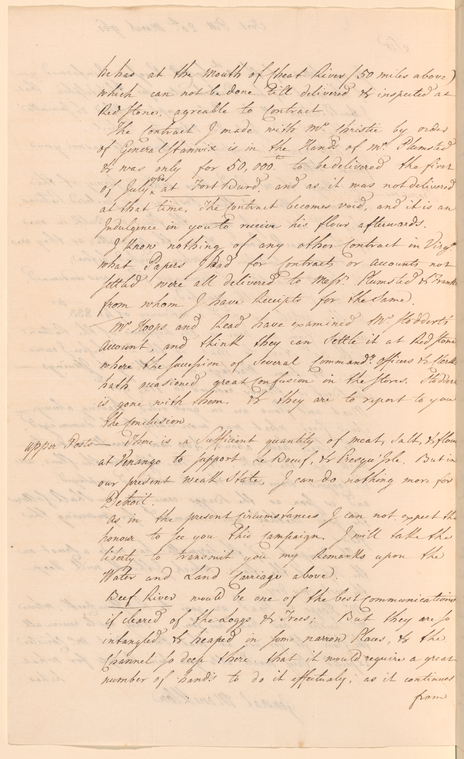 he has at the Mouth of Cheat River (50 miles above)
which can not be done till delivered & inspected at
Red Stone, agreable to Contract
The Contract I made with Mr. Christie by order
of General Stanwix is in the Hands of Mr. Plumsted
& was only for 50,000 to be delivered the first
of July at Fort Burd, and as it was not delivered
at that time, The Contract becomes void, and it is an
Indulgence in you to receive his flour afterwards.
I know nothing of any other Contract in Virga.
what Papers I had for Contracts or Accounts not
settled were all delivered to Messrs. Plumsted & Franks
from whom I have Receipts for the same.
Mr. Hoops and Read have examined Mr. Stoddert's
Account, and think they can settle it at Red Stone
where the succession of several Commandg. officers &
hath occasioned great Confusion in the Stores.
is gone with them, & they are to report to you
the Conclusion
upper Posts — There is a sufficient quantity of meat, Salt, & flour
at Venango to support Le Beuf, & Presqu'Isle. But in
our present weak State, I can do nothing more for
Detroit.
As in the present circumstances I can not expect the
honour to see you this Campaign. I will take the
liberty to transmit you my Remarks upon the
Water and Land Carriage above.
Beef River would be one of the best communications
if cleared of the Loggs & Trees; But they are so
intangled & heaped in some narrow Places, & the
Channel so deep there that it would require a great
number of hands to do it effectualy; as it continues
from